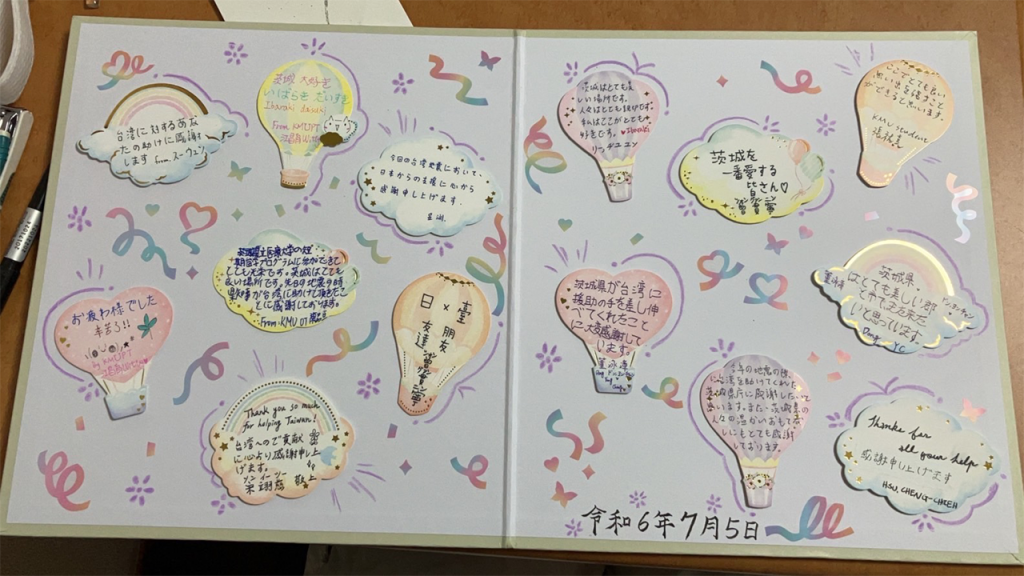 台湾に対するあな
たの助けに感謝
します from スーウェン
茨城 大好き
いばらき だいすき
Ibaraki daisuki
From KMUPT
今回の台湾地震において、
日本からの支援に心から
感謝申し上げます。
茨城県立医療大学の短
期留学プログラムに参加できて
とても光栄です。茨城はとても
良い場所です。先日の地震の時
に感謝しております。
From KMU OT
お疲れ様でした
辛苦了!!
by KMUPT
日×臺
友 朋
達 友
Thank you so much
for helping Taiwan!
台湾へのご貢献
に心より感謝申し上
げます。
敬上
茨城はとても美
しい場所です。
人々はとても親切です。
私はここがとても
好きです。
リーチユエン
茨城を
一番愛する
皆さん♡
KMU student
茨城県が台湾に
援助の手を差し伸
べてくれたこと
に大感謝して
します。
茨城県
はとても美しい郡
いと思っています。
今年の地震の後、
に台湾を助けてくれた
茨城県庁に感謝したいと
思います。また、茨城県の
人々の温かいおもてな
しにもとても感謝
しております。
Thanks for
all your help
感謝申し上げます
HSU, CHENG-CHIEH
令和6年7月5日